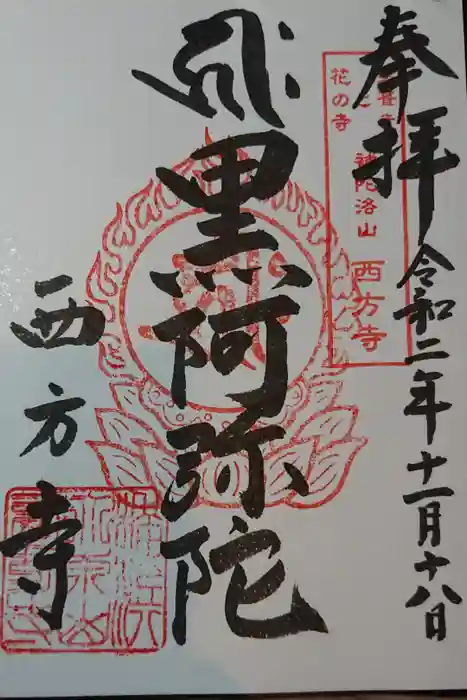 奉拝
令和二年十一月十八日
花の寺
補陀洛山 西方寺
黒阿弥陀
西方寺